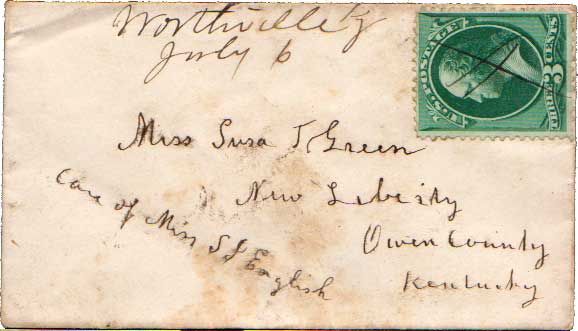 Worthville Ky
July 6
U.S. POSTAGE
THREE 3 CENTS
Miss Susa T Green
New Liberty
Owen County
Kentucky
Care of Miss S J English